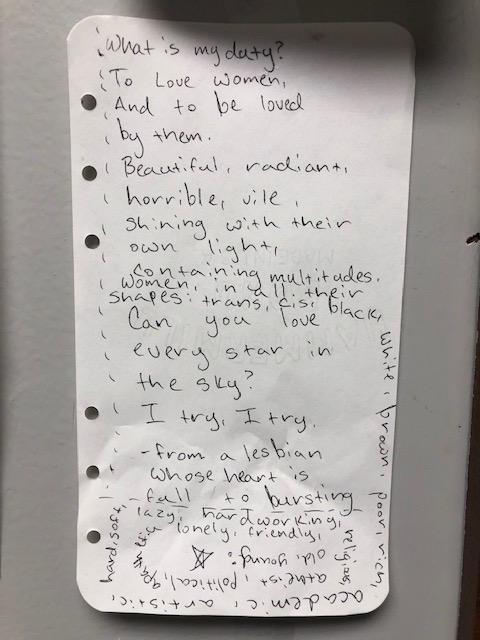 What is my duty?
To Love women,
And to be loved
by them.
Beautiful, radiant,
horrible, vile,
Shining with their
own light,
Containing multitudes.
women, in all their
shapes: trans, cis, black,
white, brown, poor, rich,
academic, artistic,
hard, soft,
lazy, hardworking,
lonely, friendly,
religious,
atheist, political,
old, young:
Can you love
every star in
the sky?
I try, I try.
-from a lesbian
whose heart is
full to bursting